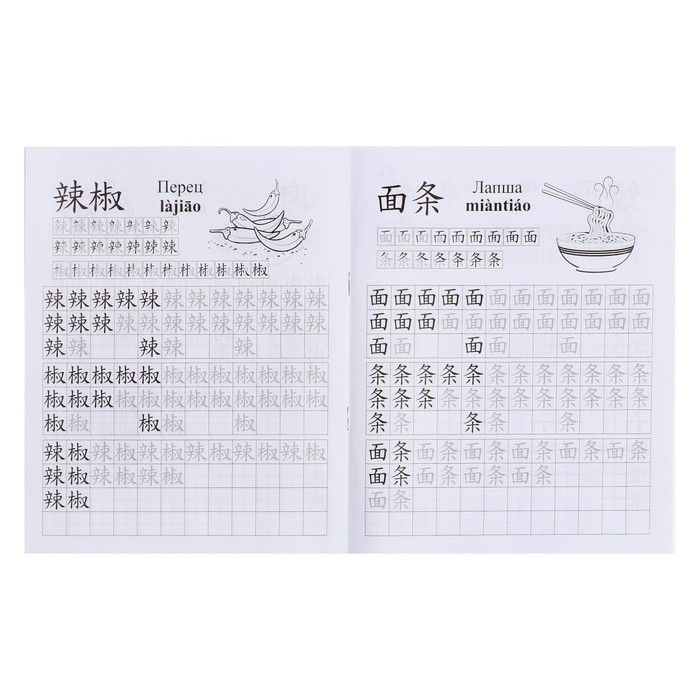 辣椒 Перец
làjiāo
辣辣辣辣辣辣辣
辣辣辣辣辣辣辣
椒椒椒椒椒椒椒椒椒椒椒椒
辣辣辣辣辣辣辣辣辣辣辣辣
辣辣辣辣辣辣辣辣辣辣辣辣
辣辣 辣辣 辣
椒椒椒椒椒椒椒椒椒椒椒椒
椒椒椒椒椒椒椒椒椒椒椒椒
椒椒 椒椒 椒
辣椒辣椒辣椒辣椒辣椒辣椒
辣椒辣椒辣椒
辣椒
面条 Лапша
miàntiáo
面面面面面面面面面
条条条条条条条
面面面面面面面面面面面面
面面面面面面面面面面面面
面面 面面 面
条条条条条条条条条条条条
条条条条条条条条条条条条
条条 条条 条
面条面条面条面条面条面条
面条面条面条面条
面条